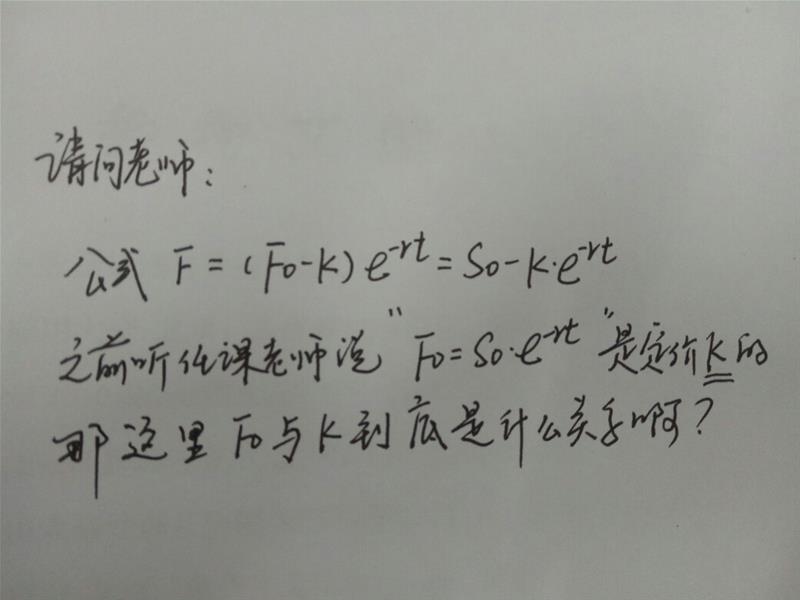 请问老师:
公式 F = (F0-K) e^-rt = S0-K·e^-rt
之前听任课老师说“F0=S0·e^-rt”是定价K的
那这里F0与K到底是什么关系啊?